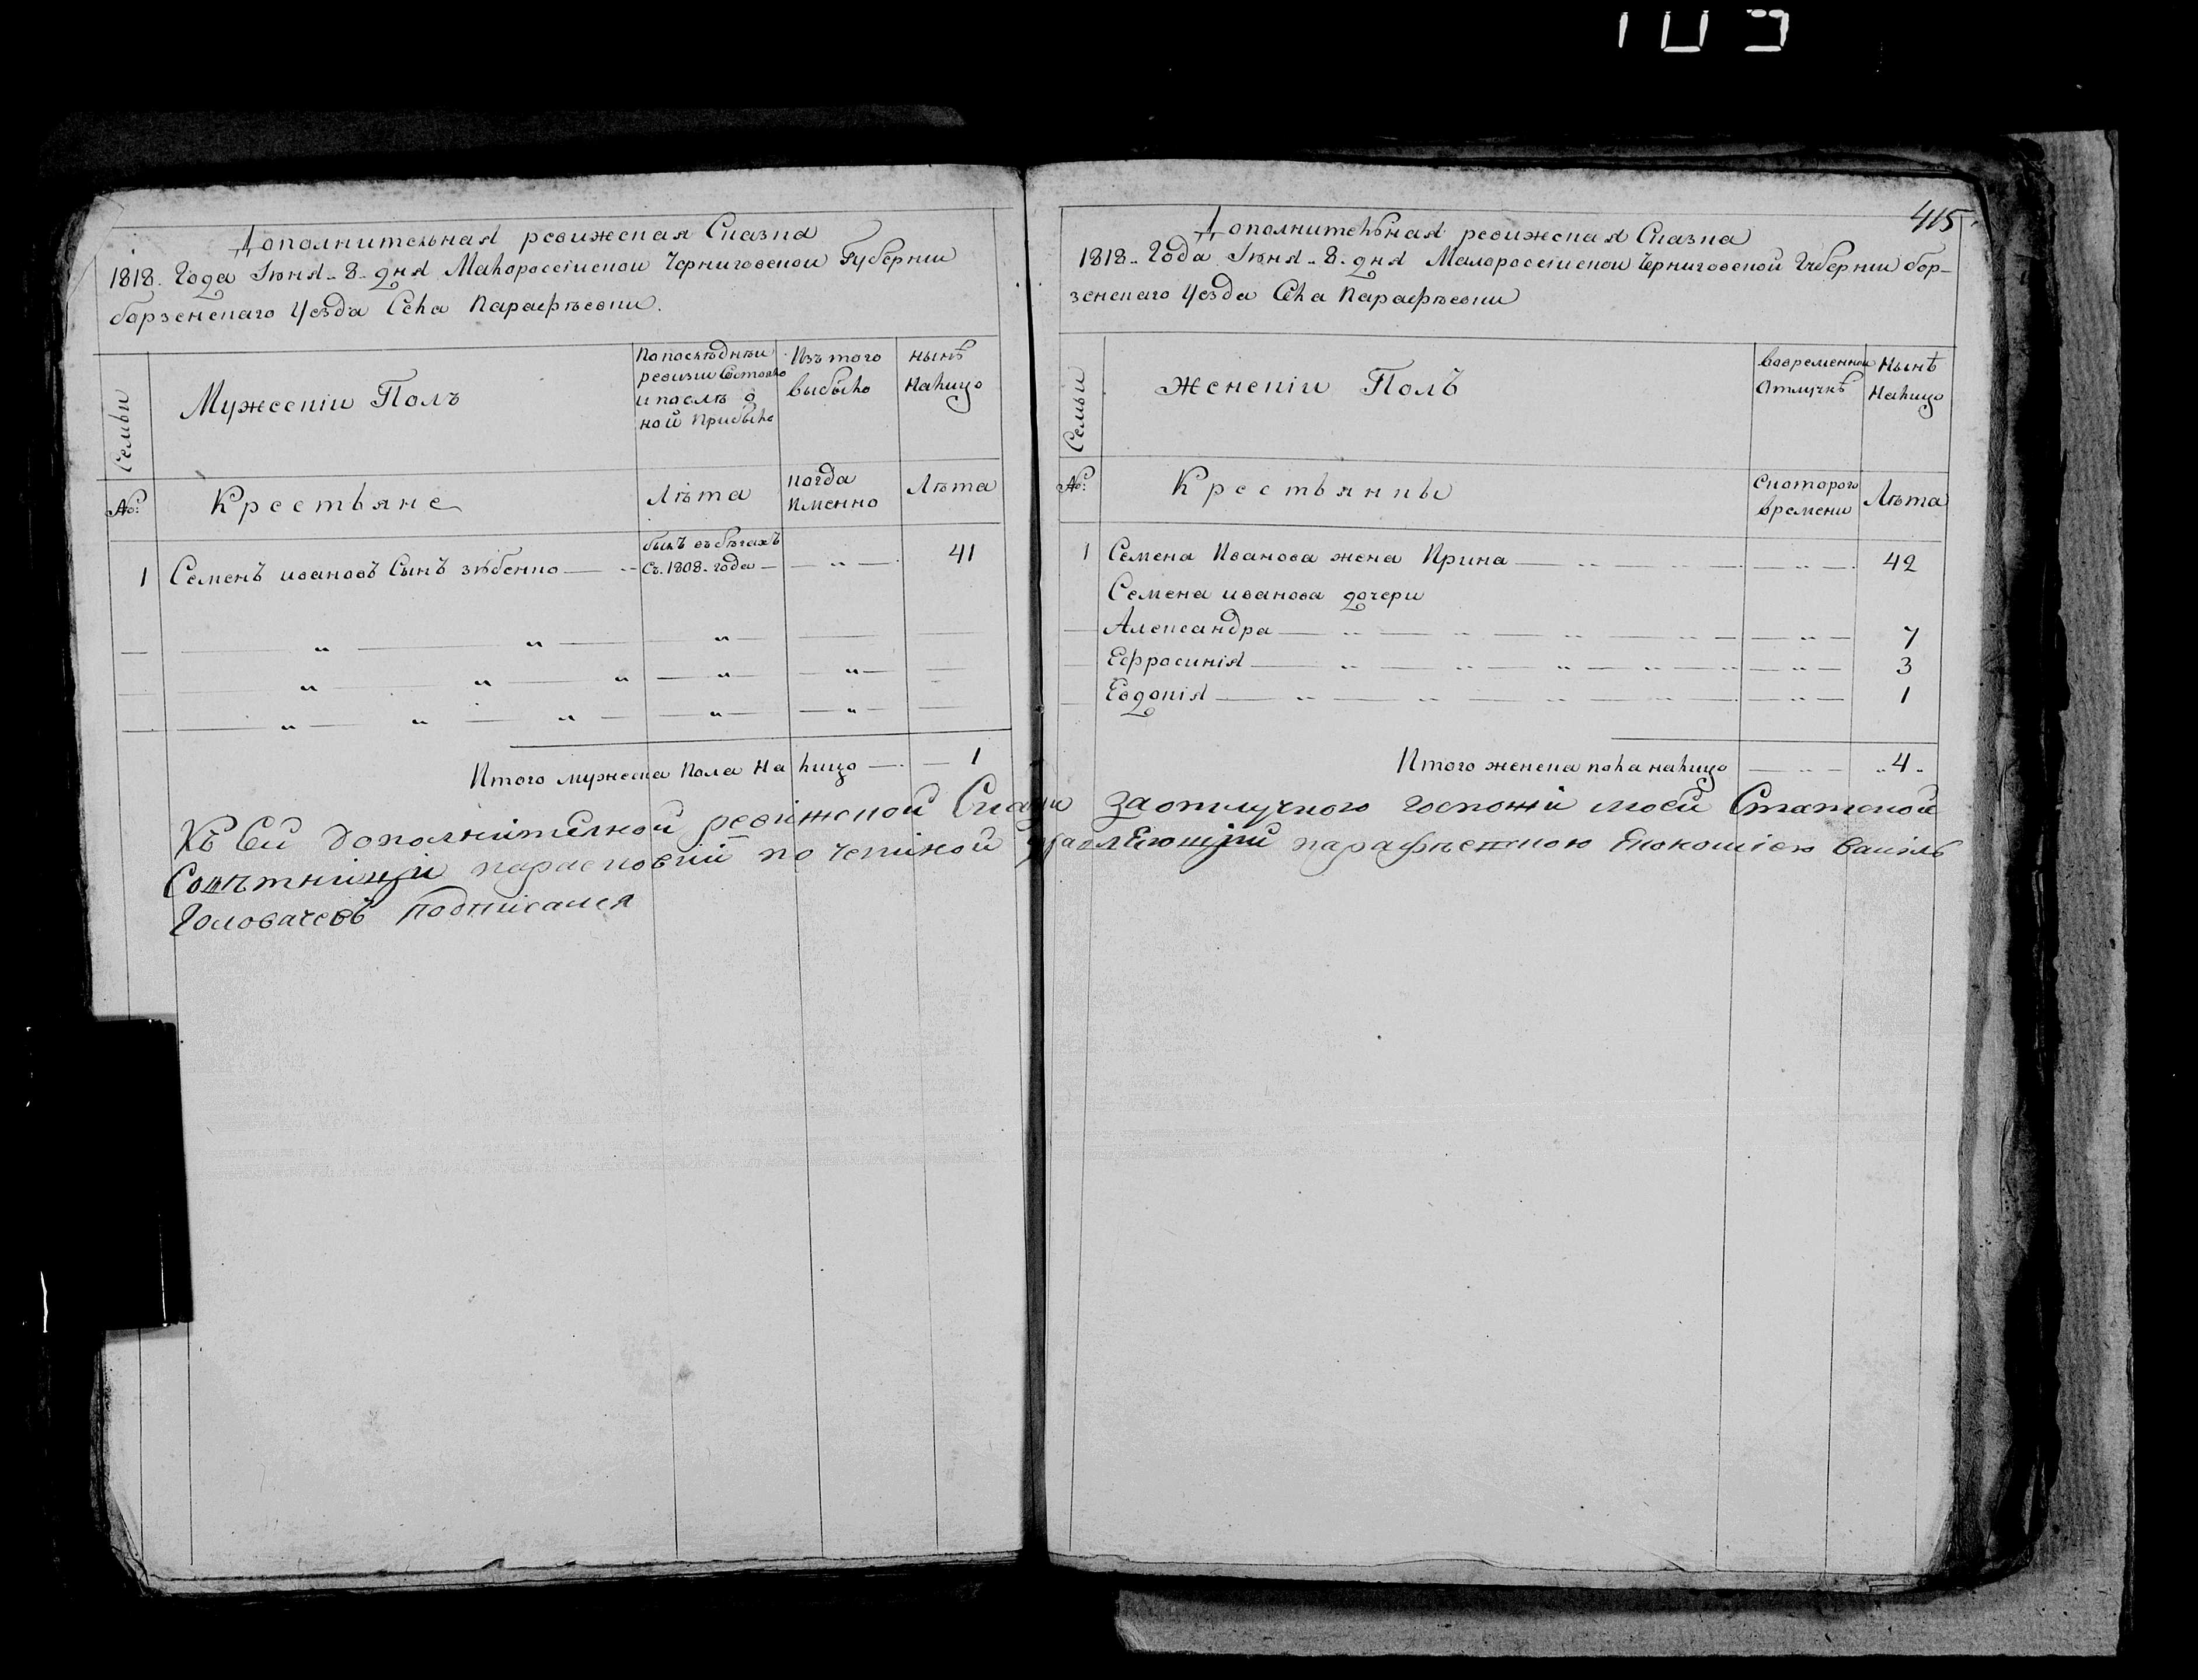 Дополнительная ревижская Сказка
1818. Года Іюня 8 дня Малороссійской Черниговской Губерніи
борзенскаго Уезда Села Парафѣевки.
Семьи
Мужескій Полъ
По последнѣи
ревизіи Состояло
и после о
ной Прибыло
Изъ того
выбыло
нынѣ
налицо
№:
Крестьяне
Лѣта
когда
Именно
Лѣта
1 Семенъ ивановъ Сынъ
былъ въ бѣгахъ
Съ 1808 года
41
Итого мужеска Пола На лицо 1
415
Дополнительная ревижская Сказка
1818 Года Іюня 8 дня Малороссійской Черниговской Губерніи бор-
зенскаго Уезда Села Парафѣевки
Семьи
Женскій Полъ
Вовременной
Отлучкѣ
Нынѣ
Налицо
№:
Крестьянки
Скоторого
времени
Лѣта
1 Семена Иванова жена Ирина 42
Семена иванова дочери
Александра 7
Ефросинія 3
Евдокія 1
Итого женска пола налицо 4
Къ Сей дополнителной ревижской Скаски За отлучкого госпожи моей Статской
Совѣтници парасковіи управляющій парафѣевскою Екокоміею Василь
Головачевъ подписался